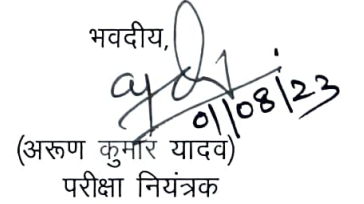 भवदीय,
01/08/23
(अरूण कुमार यादव)
परीक्षा नियंत्रक